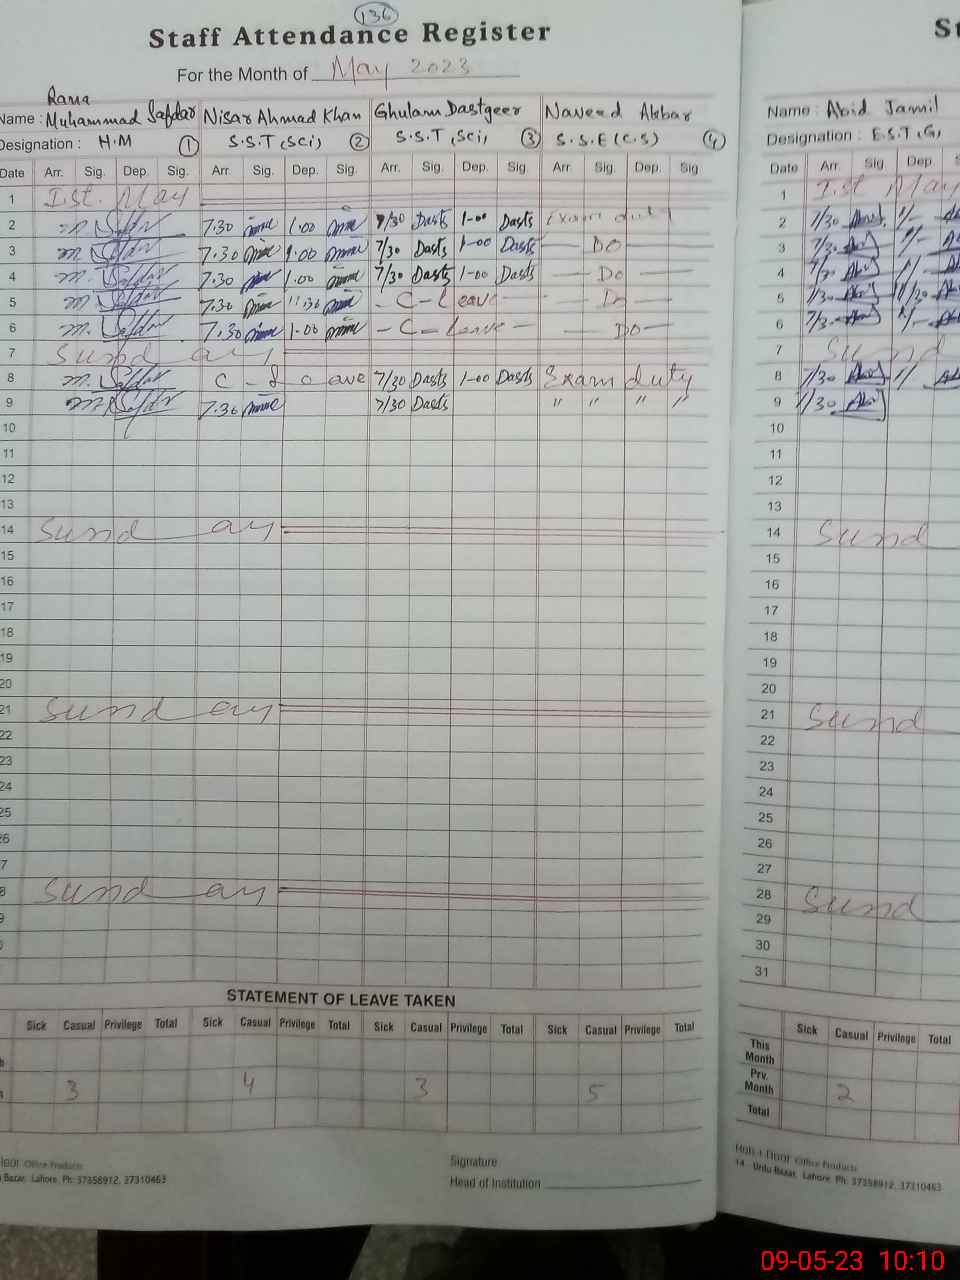 136
Staff Attendance Register
For the Month of May 2023
Name : Rana Muhammad Safdar Nisar Ahmad Khan Ghulam Dastgeer Naveed Akbar
Designation : H.M 1 S.S.T (Sci) 2 S.S.T, (Sci) 3 S.S.E (C.S) 4
Date Arr. Sig. Dep. Sig. Arr. Sig. Dep. Sig. Arr. Sig. Dep. Sig. Arr. Sig. Dep. Sig
1 Ist. May
2 M. Safdar 7.30 1.00 7/30 Dasts 1-00 Dasts Exam duty
3 M. Safdar 7.30 1.00 7/30 Dasts 1-00 Dasts — Do —
4 M. Safdar 7.30 1.00 7/30 Dasts 1-00 Dasts — Do —
5 M. Safdar 7.30 11:30 - C - Leave - — Do
6 M. Safdar 7.30 1.00 - C - Leave — — Do —
7 Sunday
8 M. Safdar C - Leave 7/30 Dasts 1-00 Dasts Exam duty
9 M. Safdar 7.30 7/30 Dasts " " " "
10
11
12
13
14 Sunday
15
16
17
18
19
20
21 Sunday
22
23
24
25
26
27
28 Sunday
STATEMENT OF LEAVE TAKEN
Sick Casual Privilege Total Sick Casual Privilege Total Sick Casual Privilege Total Sick Casual Privilege Total
3 4 3 5
Office Products
Bazar, Lahore Ph: 37358912, 37310463
Signature
Head of Institution
St
Name : Abid Jamil
Designation : E.S.T (G)
Date Arr. Sig. Dep. S
1 Ist May
2 7/30 1/-
3 7/30 1/-
4 7/30 1/-
5 7/30 11/30
6 7/30 1/-
7 Sund
8 7/30 1/
9 7/30
10
11
12
13
14 Sund
15
16
17
18
19
20
21 Sund
22
23
24
25
26
27
28 Sund
29
30
31
Sick Casual Privilege Total
This Month
Prv. Month 2
Total
Office Products
14 Urdu Bazar, Lahore Ph: 37358912, 37310463
09-05-23 10:10